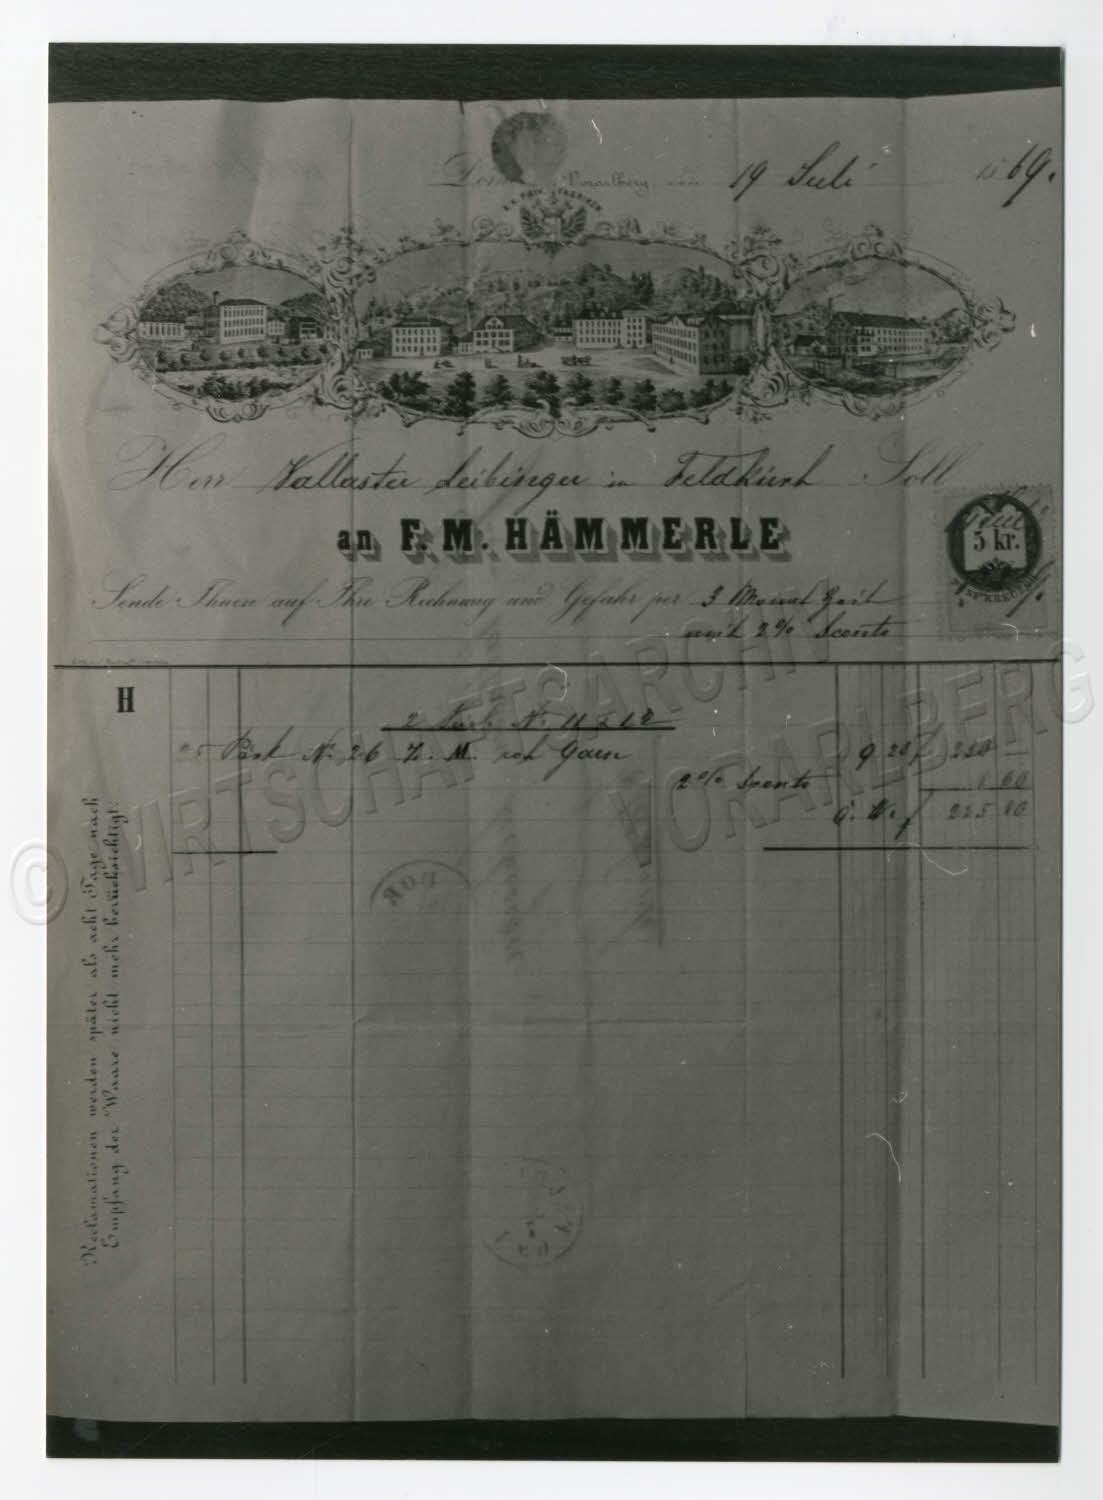 Vorarlberg, den 19 Juli 1869.
K. K. PRIV. FABRIKEN
Herr Vallaster Leibinger in Feldkirch Soll
an F. M. HÄMMERLE
5 kr.
Sende Ihnen auf Ihre Rechnung und Gefahr per 3 Monat Zeit
mit 2% Sconto
H
2 N.
25 Pack No 26 roh Garn 9 20 230 —
2% Sconto
ö. W. f 225 40
Reclamationen werden später als acht Tage nach
Empfang der Waare nicht mehr berücksichtigt.
© WIRTSCHAFTSARCHIV
VORARLBERG